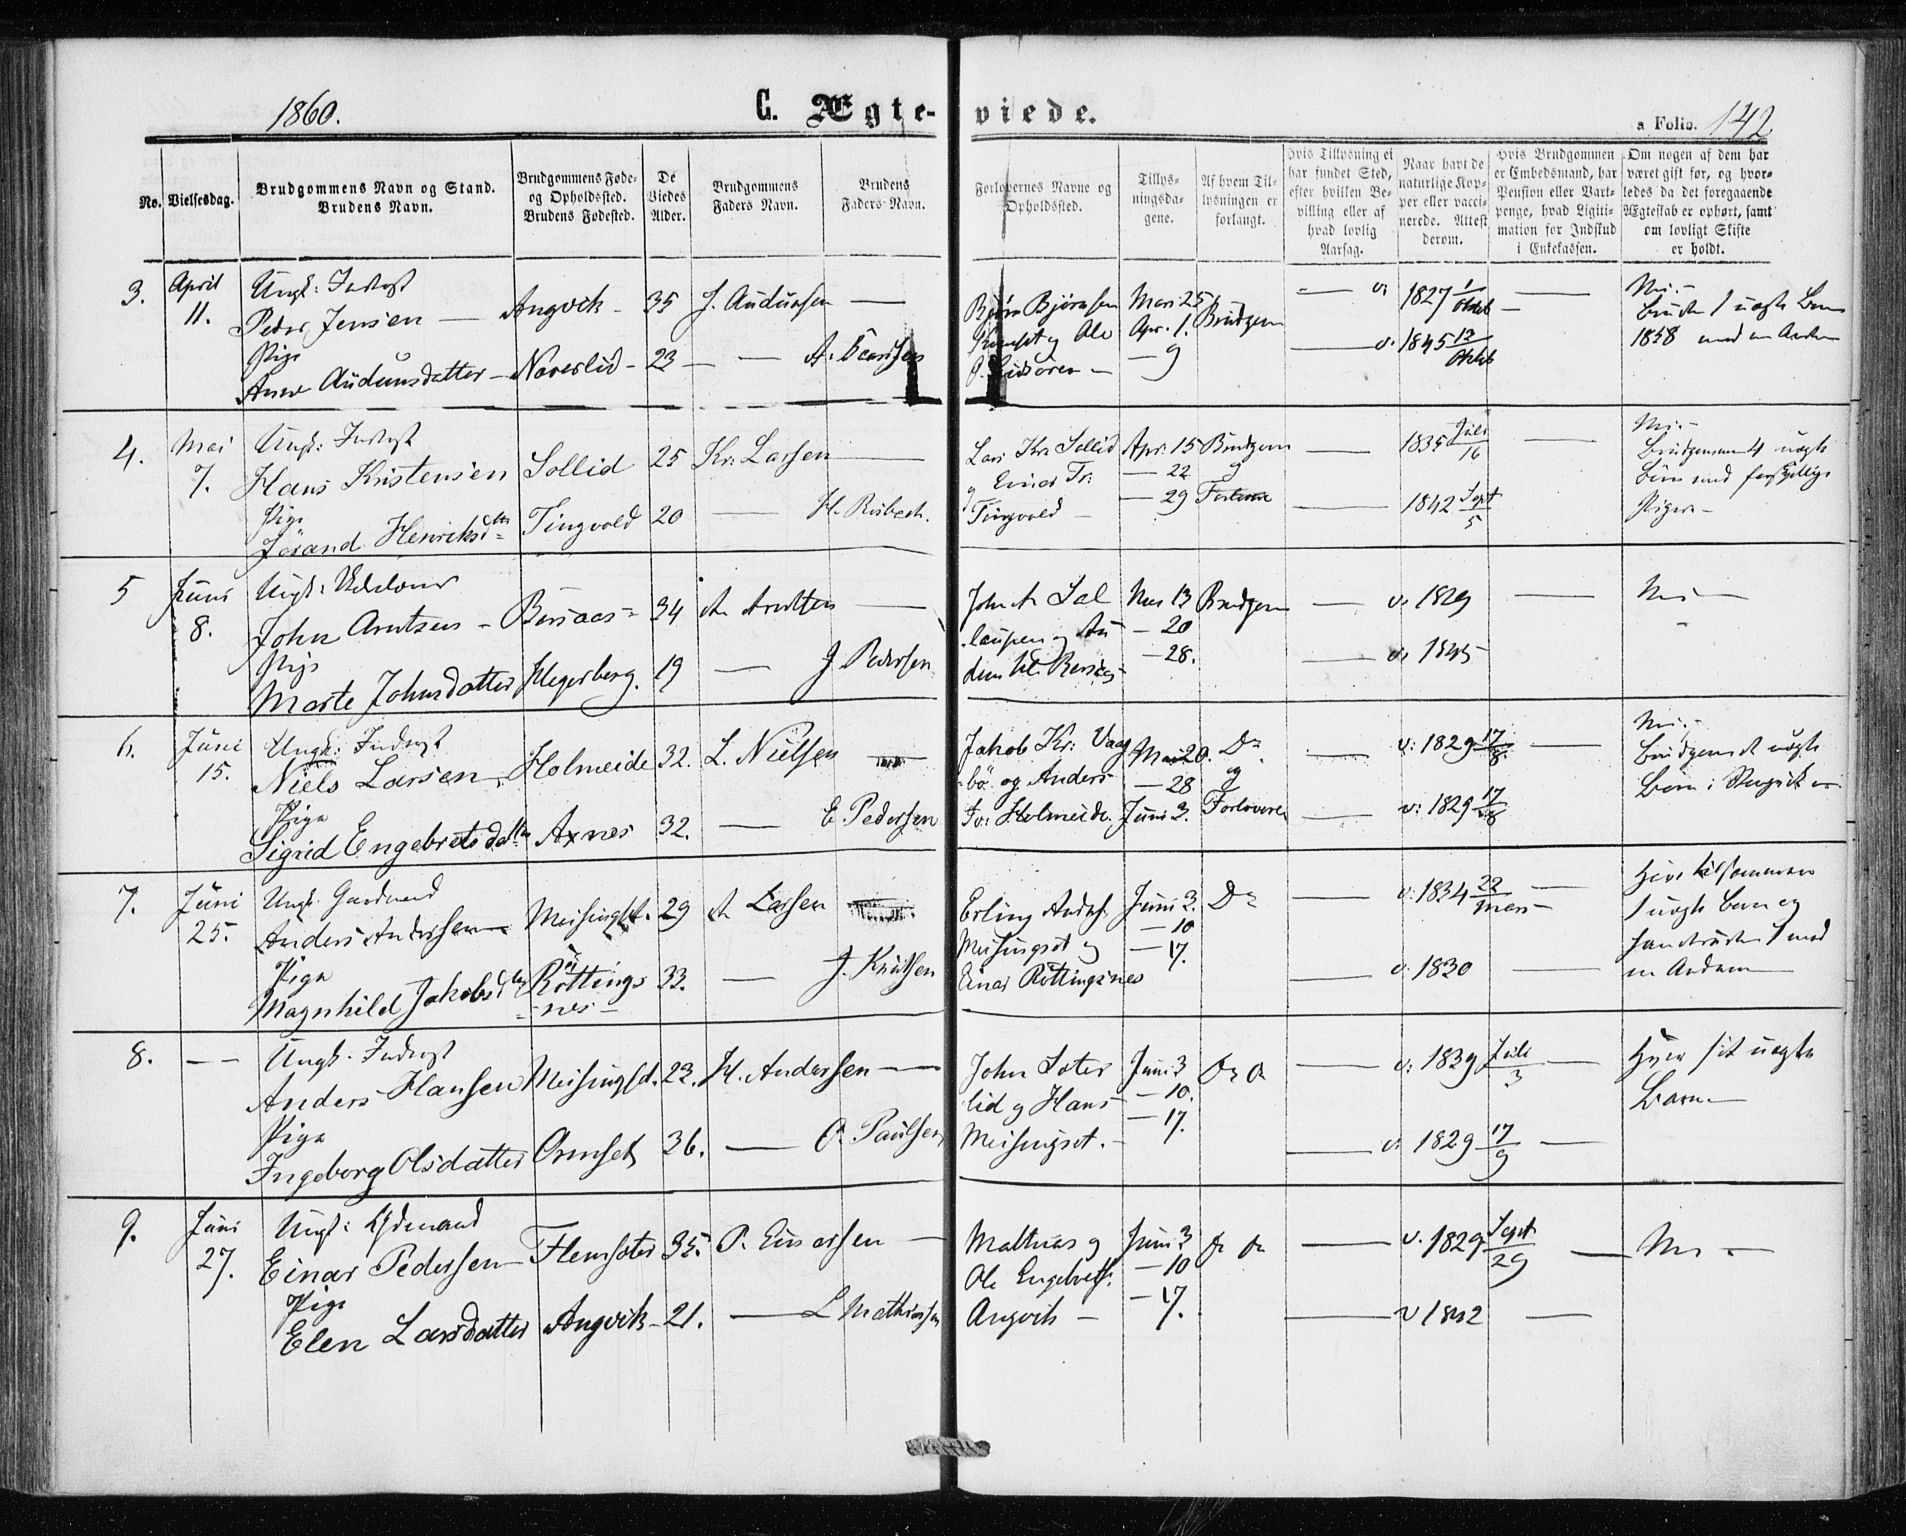 1860.
C. Ægte-
viede.
a Folio. 142
No.
Vielsesdag.
Brudgommens Navn og Stand.
Brudens Navn.
Brudgommens Føde-
og Opholdssted.
Brudens Fødested.
De
Viedes
Alder.
Brudgommens
Faders Navn.
Brudens
Faders-Navn.
Forlovernes Navne og
Opholdssted.
Tillys-
ningsda-
gene.
Af hvem Til-
lysningen er
forlangt.
Hvis Tillysning ei
har fundet Sted,
efter hvilken Be-
villing eller af
hvad lovlig
Aarsag.
Naar havt de
naturlige Kop-
per eller vacci-
nerede. Attest
derom.
Hvis Brudgommen
er Embedsmand, har
Pension eller Vart-
penge, hvad Ligiti-
mation for Indskud
i Enkekassen.
Om nogen af dem har
været gift før, og hvor-
ledes da det foregaaende
Ægteskab er ophørt, samt
om lovligt Skifte
er holdt.
3. April 11.
Ungk: Inderst
Peder Jensen — Angvik - 35 J. Audunsen —
Pige
Anne Audunsdatter - Naverlid - 23 —
Bjørn Bjørnsen
og Ole
Mars 25
Apr. 1.
— 9
Brudgom
v. 1827 1/Oktob
v. 1845 12/Oktob
Nei.-
Bruden 1 uægte Barn
1858 med en Anden
4. Mai 7.
Ungk: Inderst
Hans Kristensen Sollid 25 Kr: Larsen —
Pige
Jørand Henriksdtr Tingvold 20 — H. Risbech.
Lars Kr: Sollid
og Einar Fr:
Tingvold —
Apr: 15
— 22
— 29
Brudgom
og
Forlover
1835 Juli/16
1842 Sept/5
Nei.-
Brudgommen 4 uægte
Børn med forskjellige
Piger -
5 Juni 8.
Ungk:
John Arntsen - Bersaas - 34 A Arntsen —
Pige
Marte Johnsdatter Hegerberg. 19 — J. Pedersen
John A Sal
laupen og Au
dun Bersaas
Mai 13
— 20
— 28.
Brudgom
v. 1829
v. 1845
Nei —
6. Juni 15.
Ungk: Inderst
Niels Larsen, Holmeide 32. L. Nielsen
Pige
Sigrid Engebretsdatter Axnes 32. — E. Pedersen
Jakob Kr: Vaag
bø og Anders
Holmeide.
Mai 20.
— 28
Juni 3.
Do
og
Forlovere
v: 1829 17/8
v: 1829 17/8
Nei.-
Brudgommen uægte
Barn i
7. Juni 25.
Ungk: Gaardmand
Anders Andersen Meisingset. 29 A Larsen
Pige
Magnhild Jakobsdtr Röttings
-nes- 33. — J. Knutsen
Erling Anders.
Meisingset og
Einar Röttingsnes
Juni 3.
— 10
— 17.
Do
v. 1834 22/Mars
v. 1830
Have tilsammen
1 uægte Barn og
1 med
en Anden
8. — —
Ungk: Inderst
Anders Hansen Meisingset. 23. H. Andersen —
Pige
Ingeborg Olsdatter Ormset 36. — O. Paulsen
John Sæter
lid og Hans
Meisingset. -
Juni 3
— 10.
— 17.
Do Do
v: 1839 Juli/3
v: 1829 17/9
Hver sit uægte
Barn -
9. Juni 27.
Ungk:
Einar Pedersen Flemsæter 35. P. Einarsen —
Pige
Elen Larsdatter Angvik - 21. — L Mathiasen
Mathias og
Ole Engebrets.
Angvik —
Juni 3
— 10
— 17.
Do Do
v. 1829 Sept/29
v 1842
Nei -